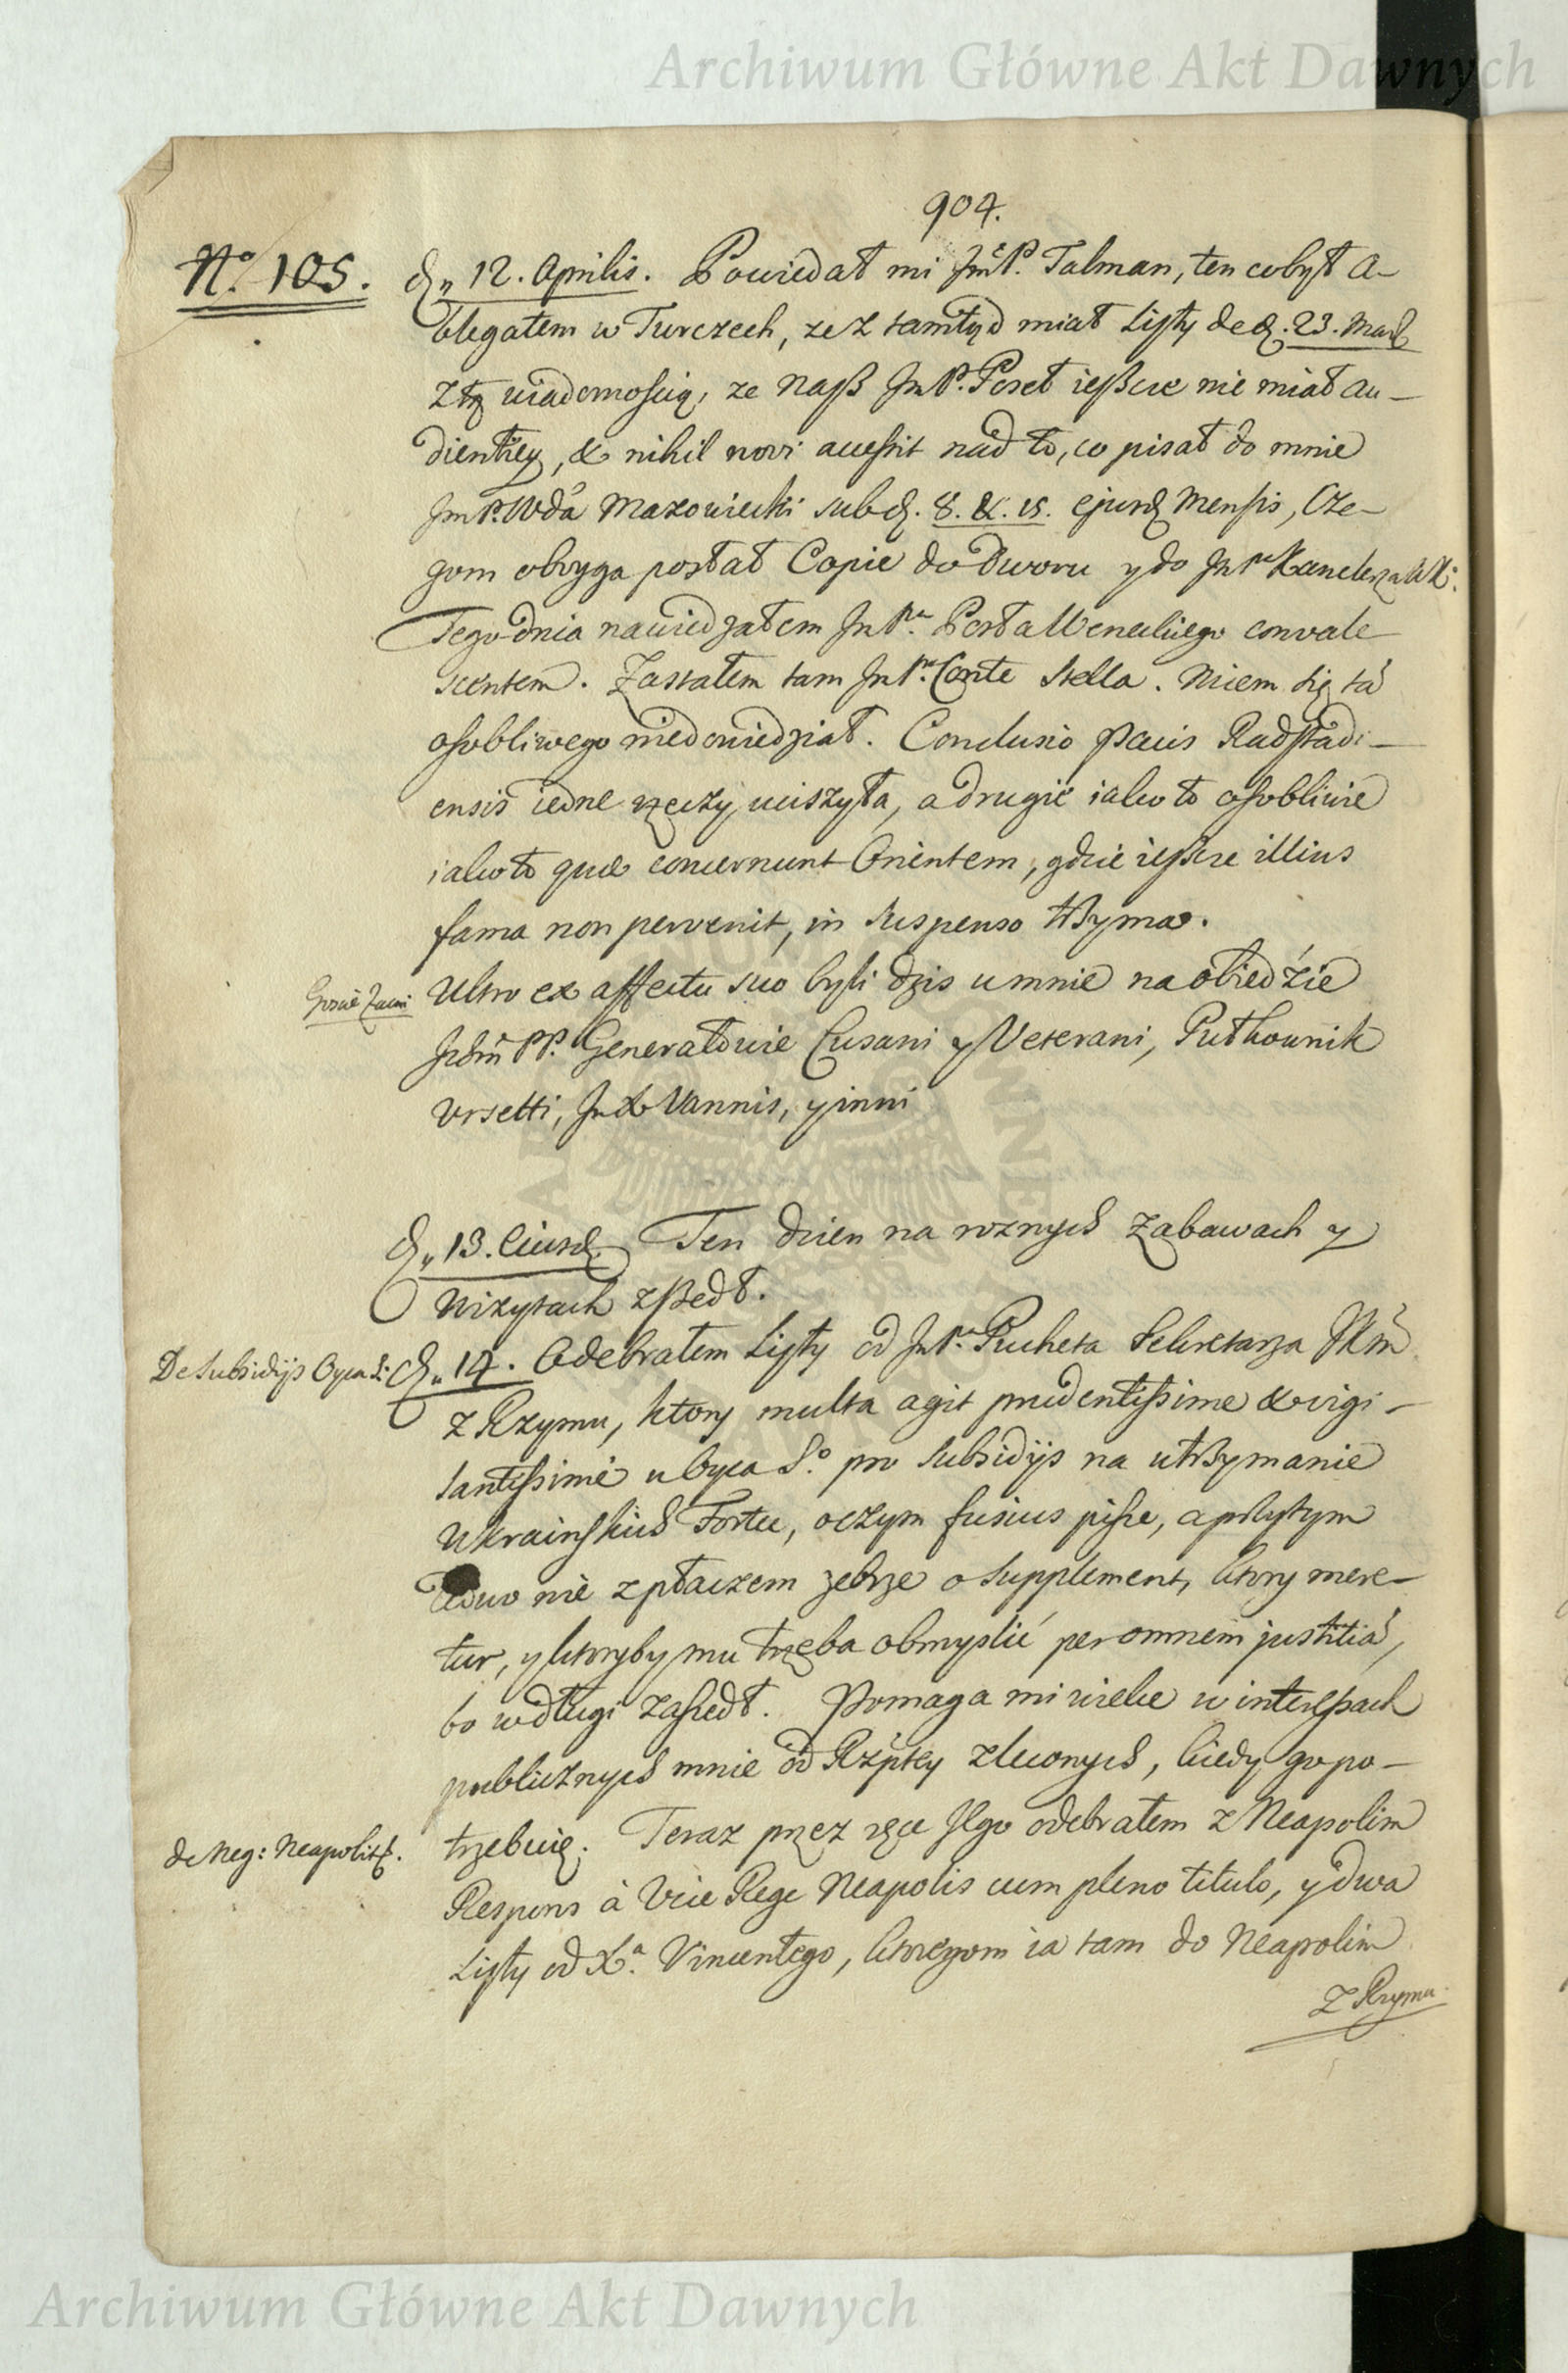 Archiwum Główne Akt Dawnych
904.
No. 105.
d„ 12. Aprilis. Powiedał mi JmP. Talman, ten co był A-
blegatem w Turczech, ze z tamtąd miał Listy de d. 23. Mart
z tą wiadomością, ze nasz JmP. Poseł ieszcze nie miał au-
dientiey, & nihil novi accessit nad to, co pisał do mnie
JmP. Wda Mazowiecki sub d. 8. &. 15. ejusd Mensis, Cze-
gom obryga posłał Copie do Dworu y do JmPa Kanclerza WK:
Tego dnia nawiedzałem JmPa. Posła Weneckiego convale-
scentem. Zastałem tam JmPa. Conte Stella. Niem się tá
osobliwego niedowiedział. Conclusio Pacis Radstadi-
ensis iedne rzeczy uciszyła, a drugie iako to osobliwie
iako to quæ concernunt Orientem, gdzie ieszcze illius
fama non pervenit, in suspenso trzyma.
Goscie Zacni
Ultro ex affectu suo byli dzis u mnie na obiedzie
Ichm PP. Generałowie Cusani y Veterani, Pułkownik
Vrsetti, JmX Vannis, y inni
d„ 13. Eiusd. Ten dzien na roznych zabawach y
wizytach zszedł.
De Subsidijs Oyca S:
d„ 14. Odebrałem Listy od JmPa. Pucheta Sekretarza JKM
z Rzymu, ktory multa agit prudentissime & vigi-
lantissime u Oyca So. pro Subsidijs na utrzymanie
Ukrainskich Fortec, o czym fusius pisze, a przytym
ledwo nie z płaczem zebrze o supplement, ktory mere-
tur, y ktoryby mu trzeba obmyslić per omnem justitiá,
bo w długi zaszedł. Pomaga mi wiele w interessach
publicznych mnie od Rzptey zleconych, kiedy go po-
de Neg: Neapolit.
trzebuię. Teraz przez ręce Jego odebrałem z Neapolim
Respons à Vice Rege Neapolis cum pleno titulo, y dwa
Listy od Xa. Vincentego, ktoregom ia tam do Neapolim
z Rzymu
Archiwum Główne Akt Dawnych